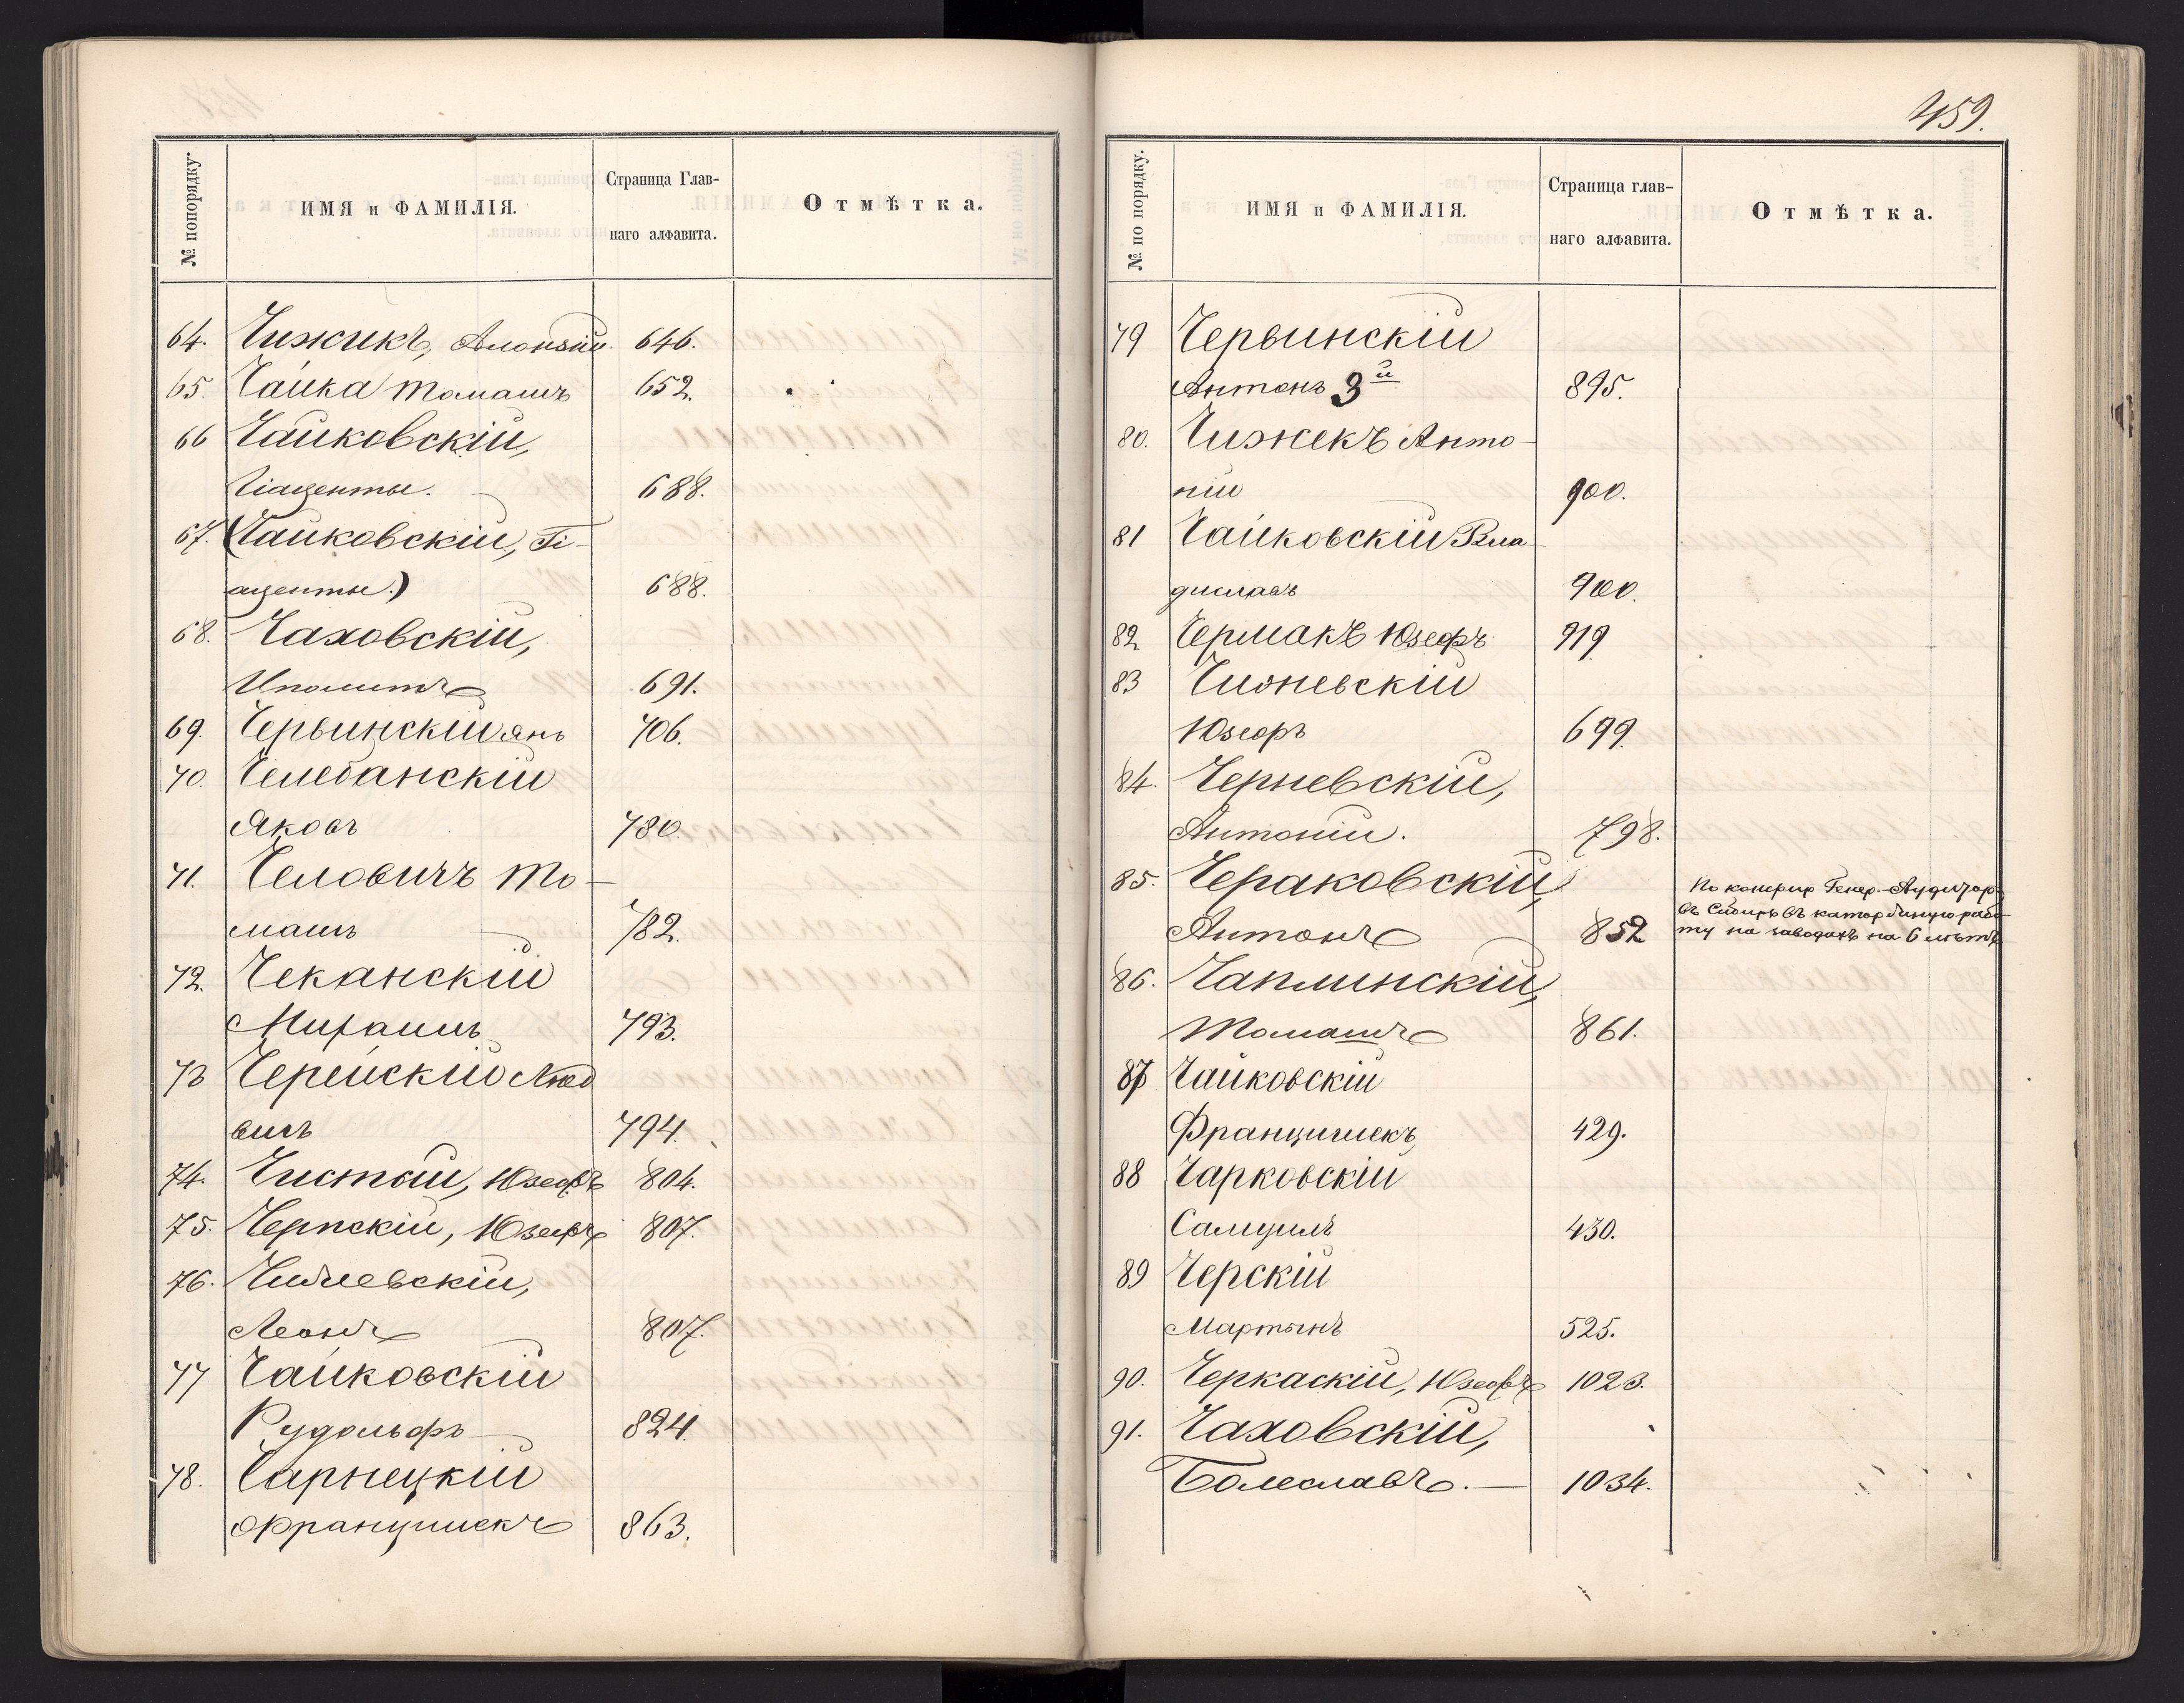 № попорядку.
ИМЯ и ФАМИЛІЯ.
Страница Глав-
наго алфавита.
Отмѣтка.
64. Чижикъ, Алоизій 646.
65. Чайка Томашъ 652.
66 Чайковскій,
Гіаценты. 688.
67. (Чайковскій, Гі-
аценты.) 688.
68. Чаховскій,
Иполитъ 691.
69. Червинскій Янъ 706.
70. Челебанскій
Яковъ 780.
71. Человичъ То-
машъ 782.
72. Чеканскій
Михаилъ 793.
73 Черейскій Люд
вигъ 794.
74. Чистый, Юзефъ 804.
75. Черпскій, Юзефъ 807.
76. Чиблевскій,
Леонъ 807.
77 Чайковскій
Рудольфъ 824
78. Чарнецкій
Францишекъ 863.
459.
№ по порядку.
ИМЯ и ФАМИЛІЯ.
Страница глав-
наго алфавита.
Отмѣтка.
79 Червинскій
Антонъ 3й 895.
80. Чижекъ Анто-
ній 900.
81 Чайковскій Вла-
диславъ 900.
82 Чермакъ Юзефъ 919
83 Чижневскій
Юзефъ 699.
84. Черневскій,
Антоній. 798.
85. Чераковскій,
Антонъ 852
По конфир Генер.-Аудитор
въ Сибирь въ каторжную рабо-
ту на заводахъ на 6 лѣтъ
86. Чаплинскій,
Томашъ 861.
87 Чайковскій
Францишекъ 429.
88 Чарковскій
Самуилъ 430.
89 Черскій
Мартынъ 525.
90. Черкаскій, Юзефъ 1023.
91. Чаховскій,
Болеславъ. — 1034.